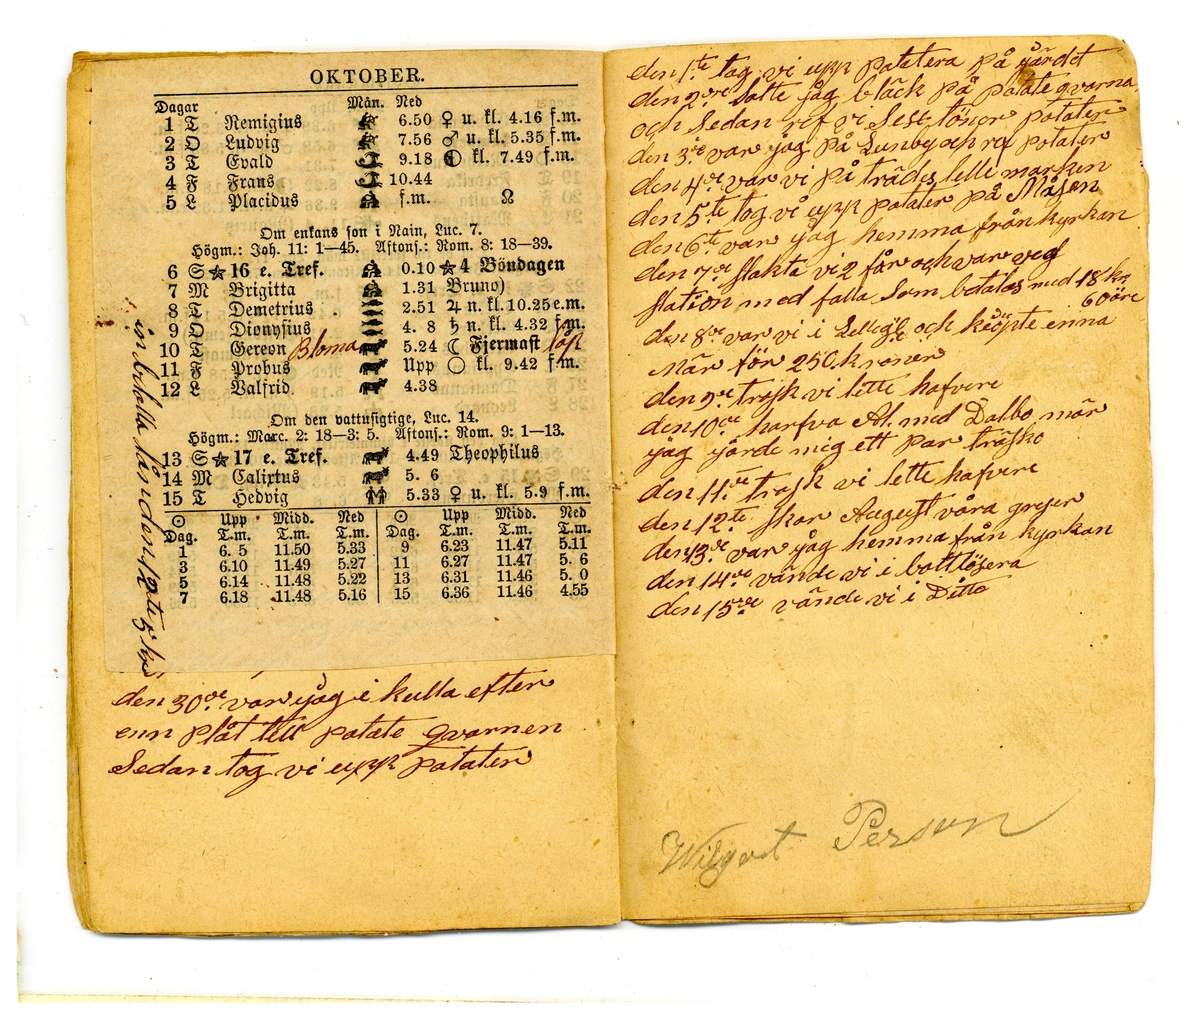 OKTOBER.
Dagar Mån. Ned
1 T Remigius 6.50 ♀ u. kl. 4.16 f.m.
2 O Ludvig 7.56 ♂ u. kl. 5.35 f.m.
3 T Evald 9.18 kl. 7.49 f.m.
4 F Frans 10.44
5 L Placidus f.m. ☊
Om enkans son i Nain, Luc. 7.
Högm.: Joh. 11: 1—45. Aftons.: Rom. 8: 18—39.
6 S ★ 16 e. Tref. 0.10 ★ 4 Böndagen
7 M Brigitta 1.31 Bruno)
8 T Demetrius 2.51 ♃ n. kl. 10.25 e.m.
9 O Dionysius 4. 8 ♄ n. kl. 4.32 f.m.
10 T Gereon Bloma 5.24 ☾ Fjermast löpt
11 F Probus Upp ○ kl. 9.42 f.m.
12 L Valfrid 4.38
Om den vattusigtige, Luc. 14.
Högm.: Marc. 2: 18—3: 5. Aftons.: Rom. 9: 1—13.
13 S ★ 17 e. Tref. 4.49 Theophilus
14 M Calixtus 5. 6
15 T Hedvig 5.33 ♀ u. kl. 5.9 f.m.
☉ Upp Midd. Ned ☉ Upp Midd. Ned
Dag. T.m. T.m. T.m. Dag. T.m. T.m. T.m.
1 6. 5 11.50 5.33 9 6.23 11.47 5.11
3 6.10 11.49 5.27 11 6.27 11.47 5. 6
5 6.14 11.48 5.22 13 6.31 11.46 5. 0
7 6.18 11.48 5.16 15 6.36 11.46 4.55
den 30de var jag i kulla efter
enn plåt till potate qvarnen
Sedan tog vi upp potater
den 1te tog vi upp potatera på gärdet
den 2dre satte jag bläck på potate qvarna
och Sedan ref vi Sest tönor potater
den 3de var jag på Lunby ap ra potater
den 4de var vi på trädes lelle marken
den 5te tog vi upp potater på Måsen
den 6te var jag hemma från kyrkan
den 7de slakta vi 2 får och var veg
station med falla Som betalas med 18 kr
60 öre
den 8de var vi i och kiöpte enna
Mär för 250 kroner
den 9de trösk vi lette hafvere
den 10de harfva At. med Dalbo mär
jag gärde mig ett par träsko
den 11de trösk vi lette hafvere
den 12te skar August våra grejer
den 13de var jag hemma från kyrkan
den 14de vände vi i bottlösera
den 15de vände vi i Ditto
Person